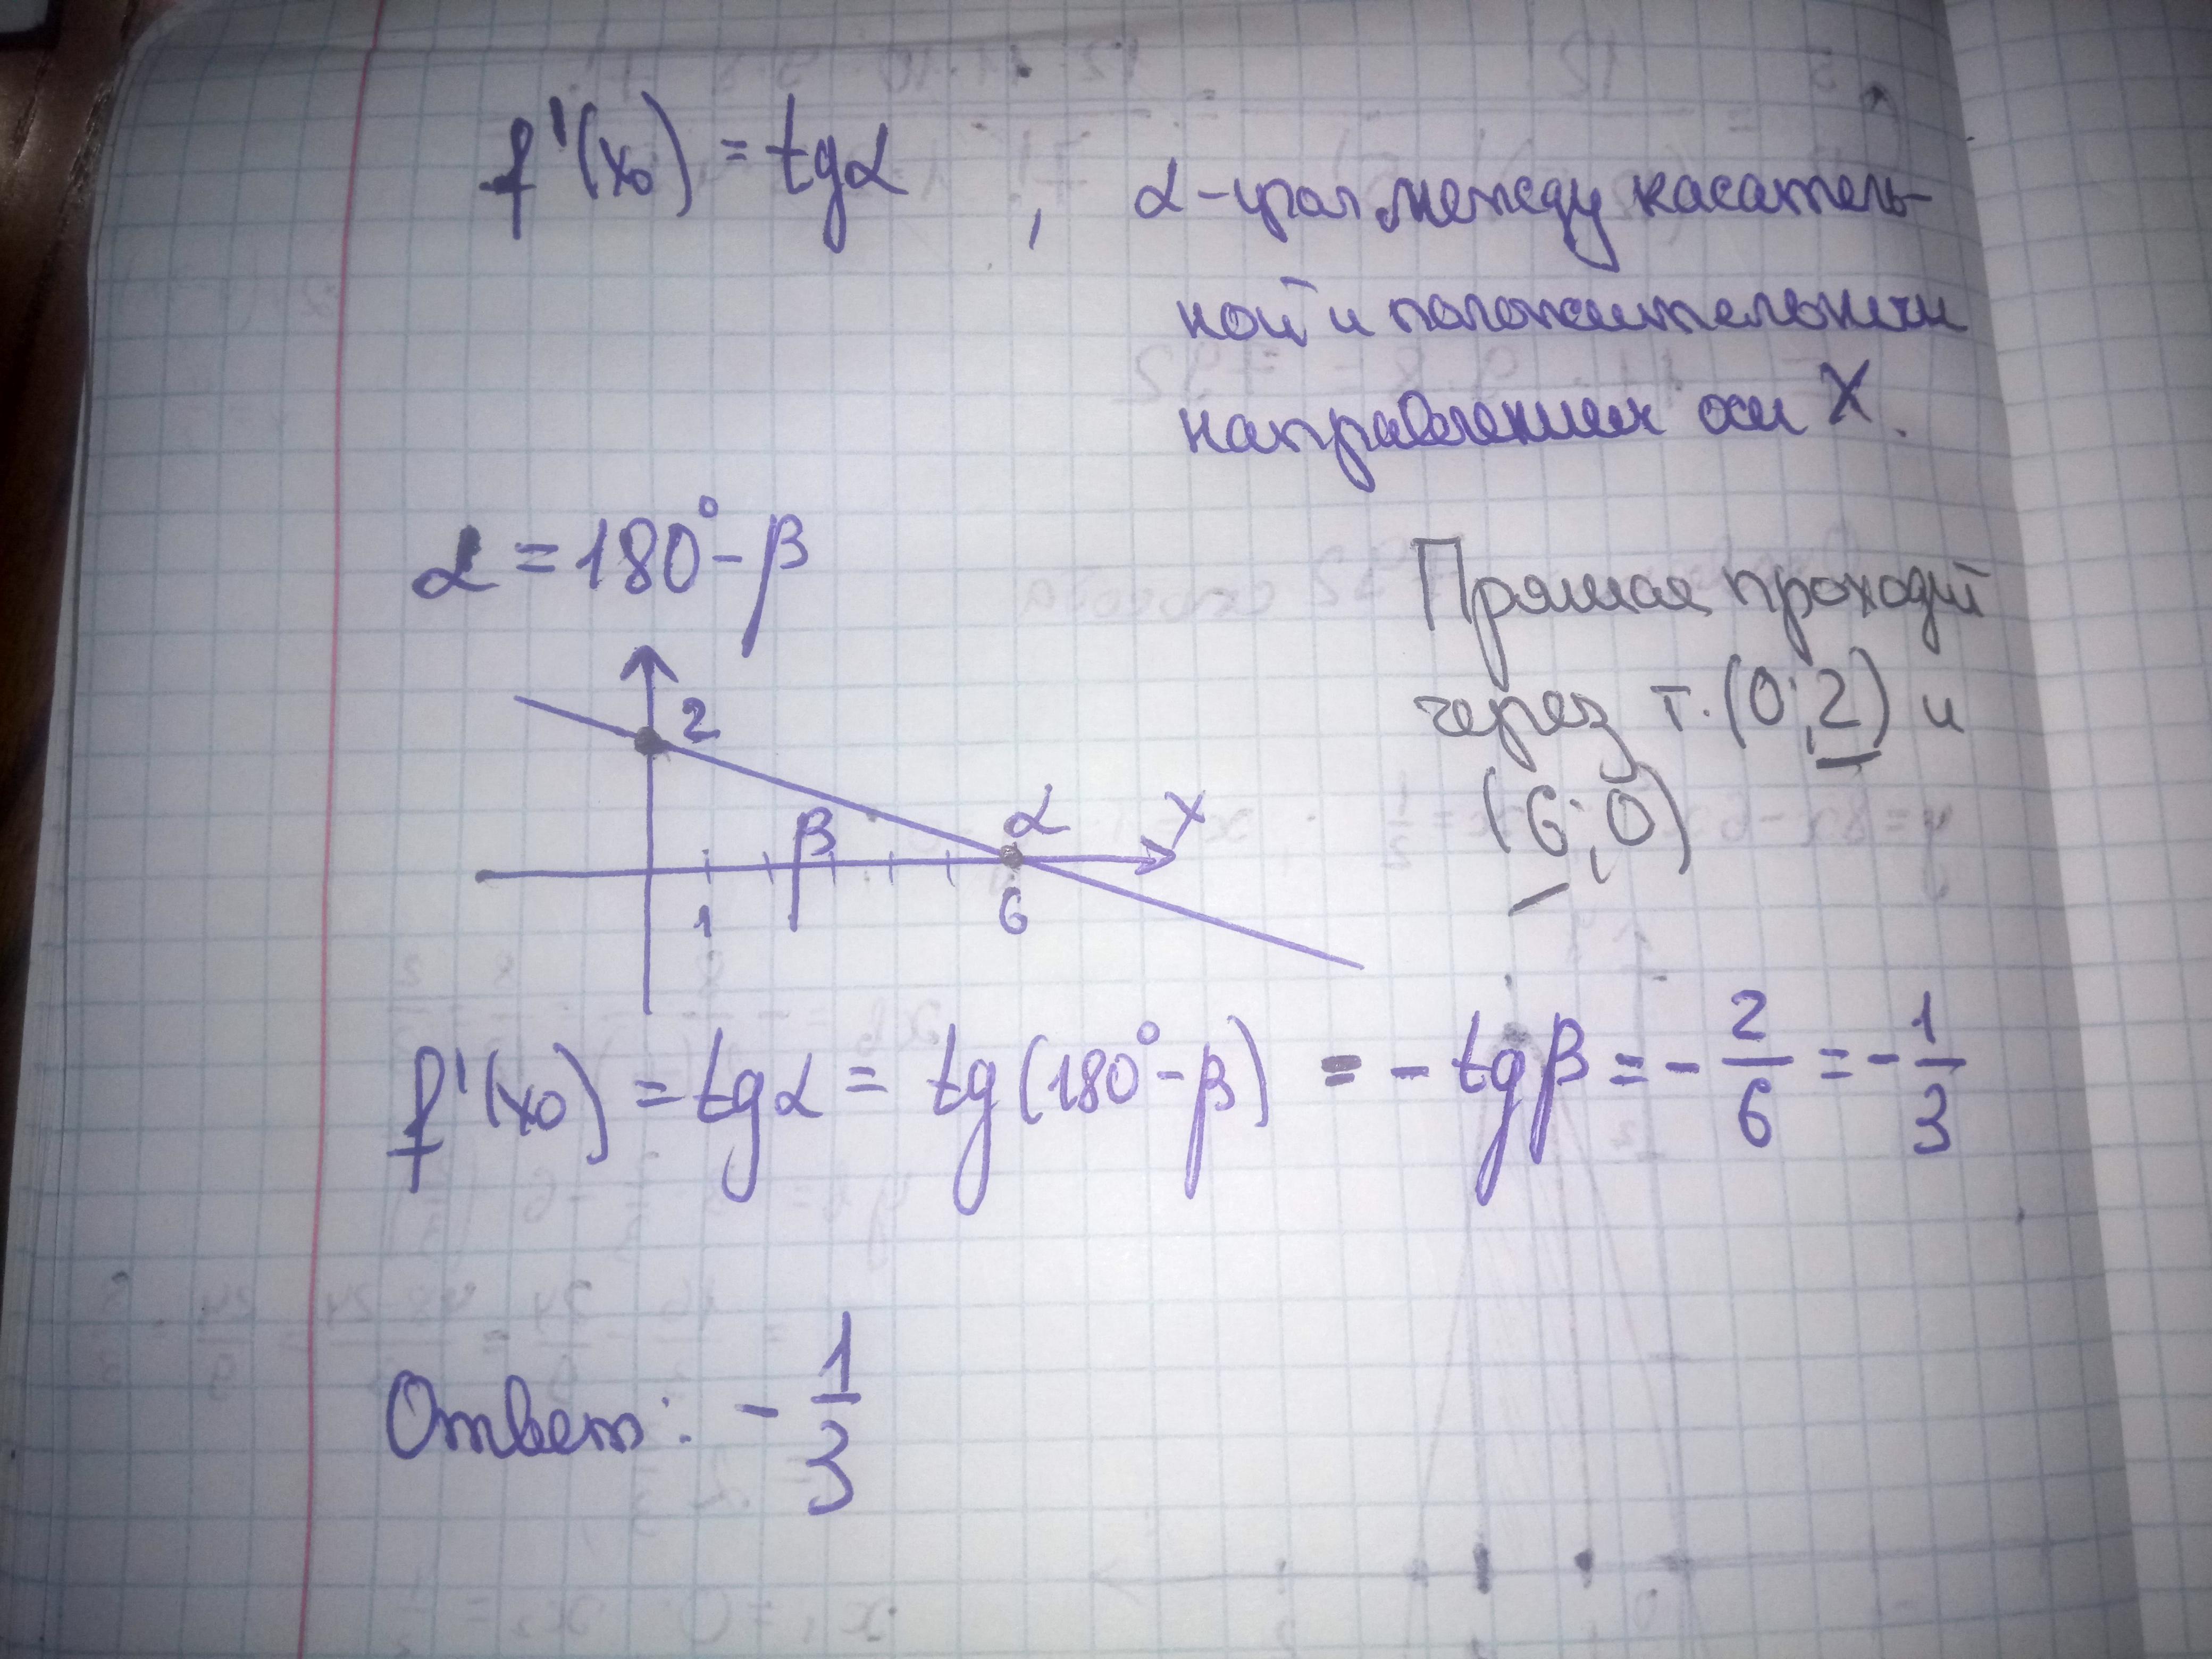 f'(x₀) = tgα , α - угол между касатель-
ной и положительным
направлением оси X.
α = 180° - β
Прямая проходит
через т. (0; 2) и
(6; 0)
2
β
α
X
1
6
f'(x₀) = tgα = tg(180° - β) = - tgβ = - 2/6 = - 1/3
Ответ: - 1/3